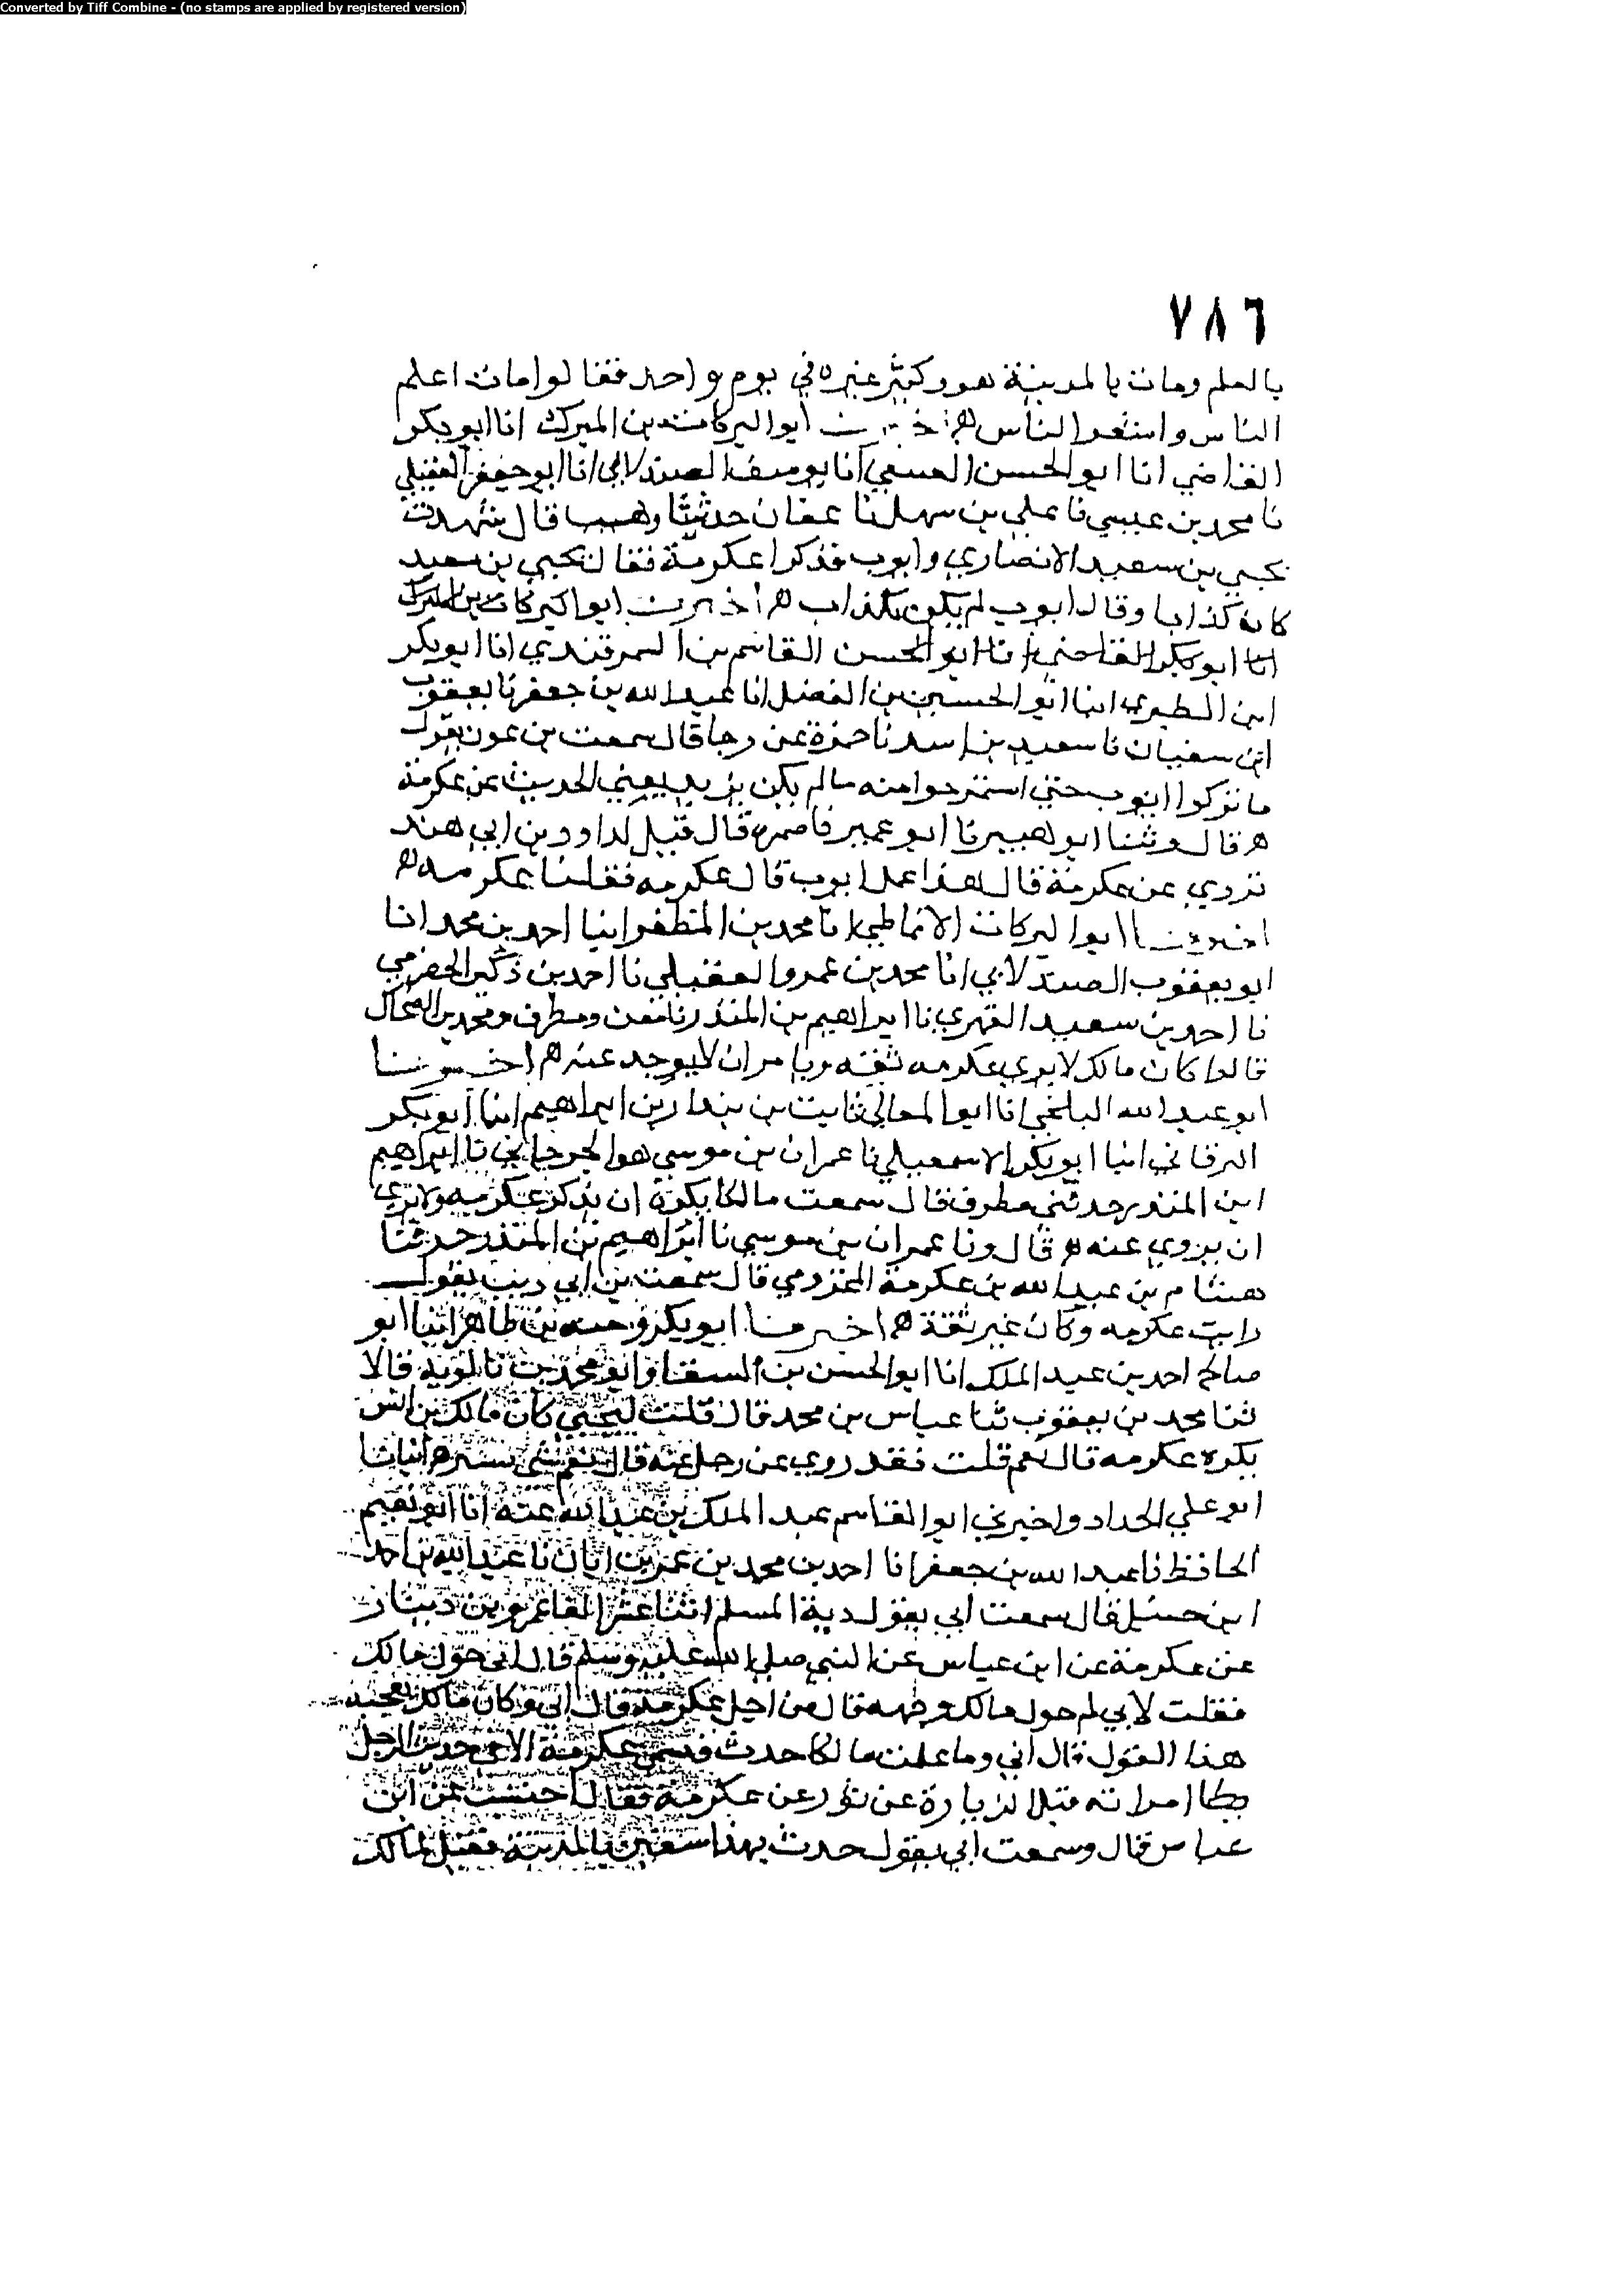 Converted by Tiff Combine - (no stamps are applied by registered version)
٧٨٦
بالعلم ومات بالمدينة هو وكثير عزه في يوم واحد فقالوا مات اعلم
الناس واشعر الناس ه اخبرنا ابوا البركات بن المبرك انا ابو بكر
القاضي انا ابو الحسن العتيقي انا يوسف الصيدلاني انا ابو جعفر العقيلي
نا محمد بن عيسي نا علي بن سهل نا عفان حدثنا وهيب قال شهدت
يحيي بن سعيد الانصاري وايوب فذكرا عكرمة فقال يحيي بن سعيد
كان كذابا وقال ايوب لم يكن بكذاب ه اخبرنا ابوا البركات بن المبرك
انا ابو بكر القاضي انا ابو الحسن القاسم بن السمرقندي انا ابو بكر
ابن الطبري انبا ابو الحسين بن الفضل انا عبد الله بن جعفر نا يعقوب
ابن سفيان نا سعيد بن اسد نا ضمرة عن رجا قال سمعت بن عون يقول
ما تركوا ايوب حتي استخرجوا منه ما لم يكن يريد يعني الحديث عن عكرمة
ه قال وثنا ابو عمير نا ضمره قال قيل لداود بن ابي هند
تروي عن عكرمة قال هذا عمل ايوب قال عكرمه فقلنا عكرمه ه
اخبرنا ابوا البركات الانماطي انا محمد بن المظفر انبا احمد بن محمد انا
ابو يعقوب الصيدلاني انا محمد بن عمرو العقيلي نا احمد بن زكير الحضرمي
نا احمد بن سعيد الفهري نا ابراهيم بن المنذر نا معن ومطرف ومحمد بن الضحاك
قالوا كان مالك لا يري عكرمه ثقه ويامر ان لا يوخد عنه ه اخبرنا
ابو عبد الله البلخي انا ابوا المعالي ثابت بن بندار بن ابراهيم انبا ابو بكر
البرقاني انبا ابو بكر الاسمعيلي نا عمران بن موسي هو الجرجاني نا ابراهيم
ابن المنذر حدثني مطرف قال سمعت مالكا يكره ان يذكر عكرمه ولا يري
ان يروي عنه ه قال ونا عمران بن موسي نا ابراهيم بن المنذر حدثنا
هشام بن عبد الله بن عكرمة المخزومي قال سمعت بن ابي ذيب يقول
رايت عكرمه وكان غير ثقة ه اخبرنا ابو بكر وجيه بن طاهر انبا ابو
صالح احمد بن عبد الملك انا ابو الحسن بن السقا وابو محمد بن بالويه قالا
ثنا محمد بن يعقوب ثنا عباس بن محمد قال قلت ليحيي كان مالك بن انس
يكره عكرمه قال نعم قلت فقد روي عن رجل عنه قال نعم شي يسير ه انبانا
ابو علي الحداد واخبرني ابو القاسم عبد الملك بن عبد الله عنه انا ابو نعيم
الحافظ نا عبد الله بن جعفر انا احمد بن محمد بن عمر بن ابان نا عبد الله بن احمد
ابن حنبل قال سمعت ابي يقول دية المسلم اثنا عشر الفا عمرو بن دينار
عن عكرمة عن ابن عباس عن النبي صلي الله عليه وسلم قال ابي حول مالك
فقلت لابي لم حول مالك وجهه قال من اجل عكرمة قال ابي وكان مالك يعجبه
هذا القول قال ابي وما علمت مالكا حدث فسمي عكرمة الا في حديث الرجل
يطا امراته قبل الزيارة عن ثور عن عكرمة فقال احسب عن ابن
عباس قال وسمعت ابي يقول حدث بهذا سفين بالمدينة فقيل لمالك